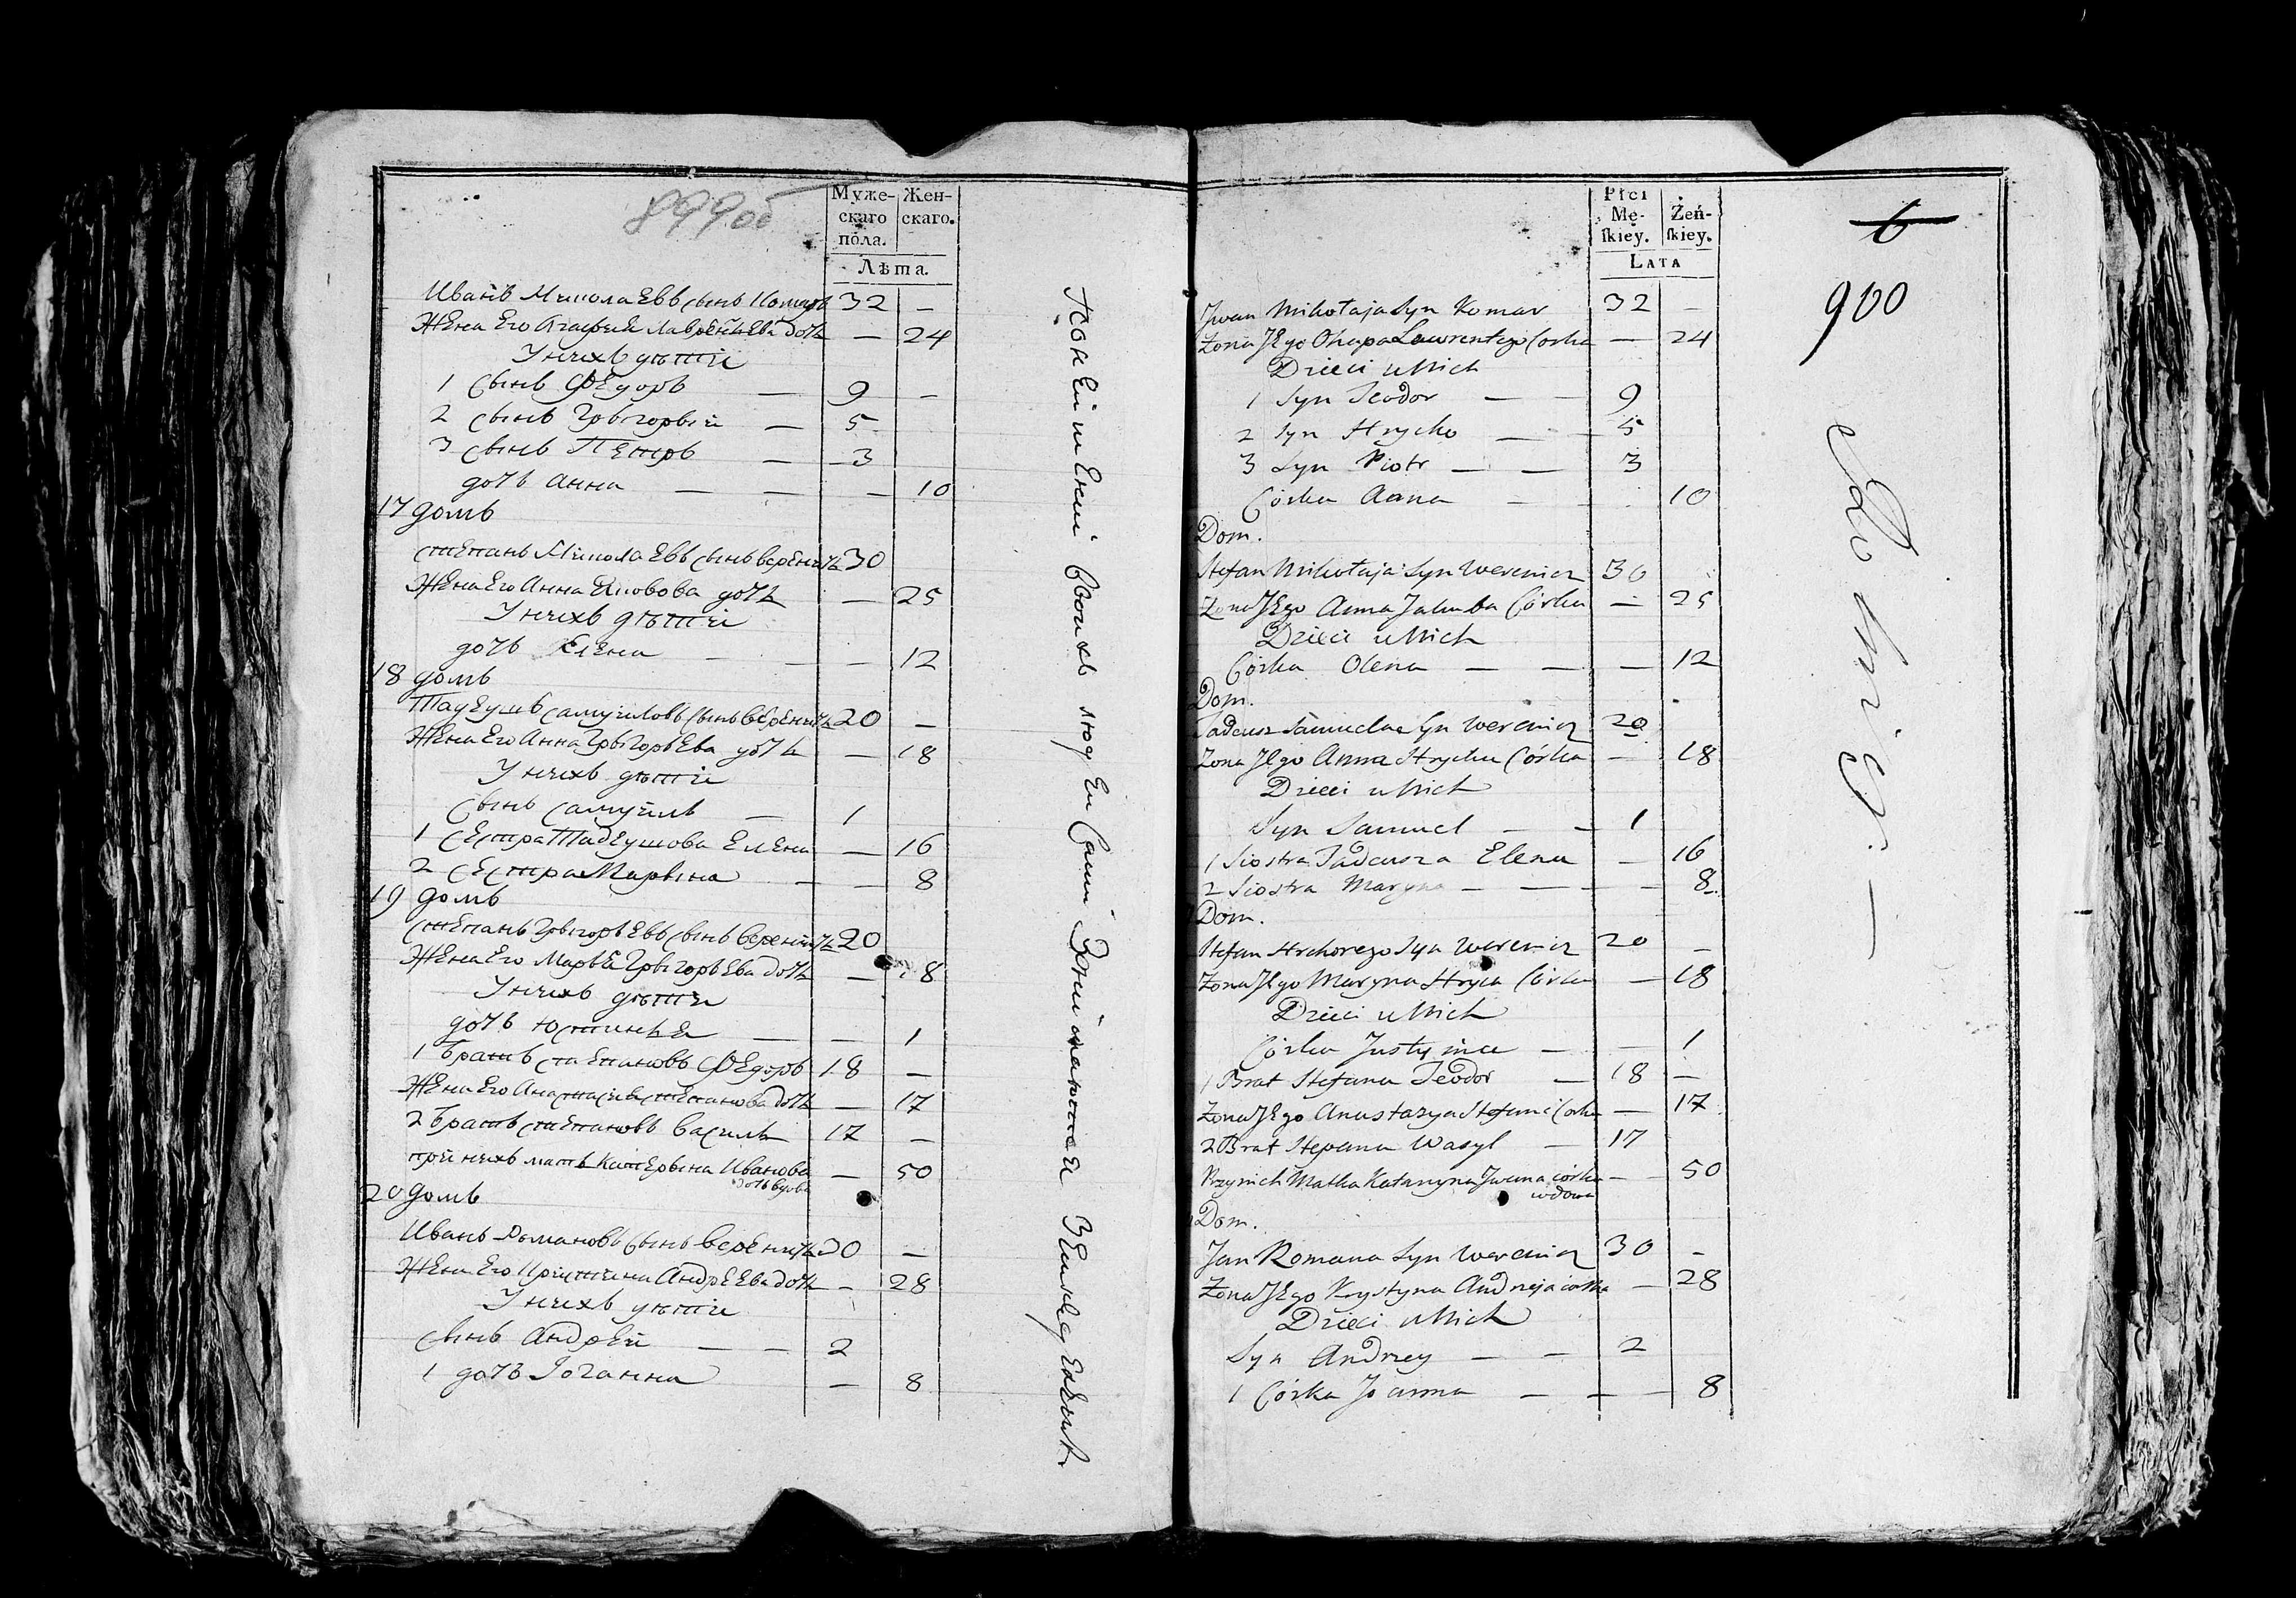 899об
Муже- Жен-
скаго скаго.
пола.
Лѣта.
Иванъ Миколаевъ сынъ Комаръ 32 —
Жена Его Агафия Лаврентьева дочь — 24
У нихъ дѣти
1 сынъ Федоръ — 9 —
2 сынъ Грыгорый — 5
3 сынъ Петръ — 3
дочь Анна — — — 10
17 домъ
Степанъ Миколаевъ сынъ Вереничъ 30
Жена Его Анна Яковова дочь — 25
У нихъ дѣти
дочь Елена — — — 12
18 домъ
Тадеушъ Самуиловъ сынъ Вереничъ 20 —
Жена Его Анна Грыгорьева дочь — 18
У нихъ дѣти
сынъ Самуилъ — 1
1 сестра Тадеушова Елена — 16
2 сестра Марына — — 8
19 домъ
Степанъ Грыгорьевъ сынъ Вереничъ 20
Жена Его Марья Грыгорьева дочь — 18
У нихъ дѣти
дочь Юстинья — — 1
1 братъ Степановъ Федоръ 18 —
Жена Его Анастасия Степанова дочь — 17
2 братъ Степановъ Василь 17 —
при нихъ мать Катерына Иванова — 50
дочь вдова
20 домъ
Иванъ Романовъ сынъ Вереничъ 30 —
Жена Его Кристина Андреева дочь — 28
У нихъ дѣти
сынъ Андрей — — 2
1 дочь Іоганна — 8
людей
Płci
Mę- Żeń-
ſkiey. ſkiey.
LATA
6
900
Jwan Mikołaja Syn Komar 32 —
Zona JEgo Ohapa Lawrentego Corka — 24
Dzieci u Nich
1 Syn Teodor — — 9
2 Syn Hrycko — — 5
3 Syn Piotr — — 3
Córka Anna — 10
Dom.
Stefan Mikołaja Syn Werenicz 30
Zona JEgo Anna Jakuba Córka — 25
Dzieci u Nich
Córka Olena — — — 12
Dom.
Tadeusz Samuela Syn Werenicz 20
Zona JEgo Anna Hrycka Córka — 18
Dzieci u Nich
Syn Samuel — — 1
1 Siostra Tadeusza Elena — 16
2 Siostra Maryna — — — 8
Dom.
Stefan Hrehorego Syn Werenicz 20 —
Zona JEgo Maryna Hryca Córka — 18
Dzieci u Nich
Córka Justyna — — 1
1 Brat Stefana Teodor — 18 —
Zona JEgo Anastazya Stefana Corka — 17
2 Brat Stepana Wasyl — 17
Przy nich Matka Katarzyna Jwana córka — 50
wdowa
Dom.
Jan Romana Syn Werenicz 30 —
Zona JEgo Krystyna Andrzeja corka — 28
Dzieci u Nich
Syn Andrzey — — 2
1 Córka Joanna — — — 8